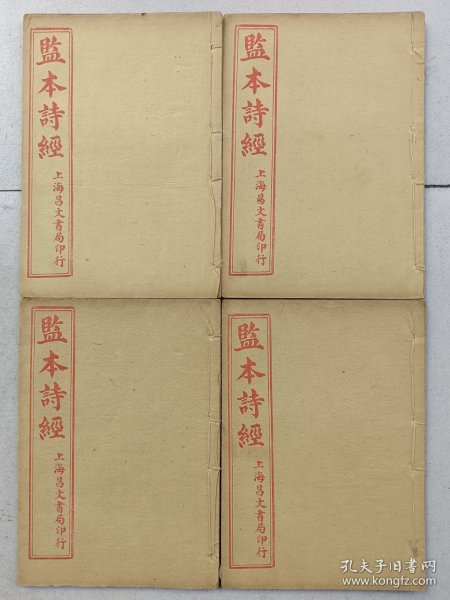 監本詩經
上海昌文書局印行
監本詩經
上海昌文書局印行
監本詩經
上海昌文書局印行
監本詩經
上海昌文書局印行
孔夫子旧书网
www.kongfz.com